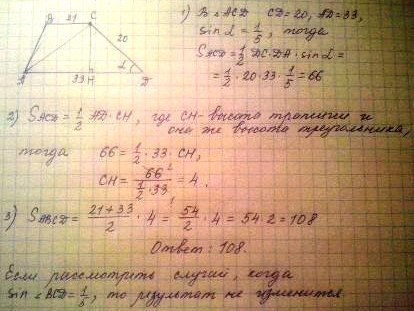 B 21 C
20
A 33 H α D
1) В ΔACD CD=20, AD=33,
sin α = 1/5, тогда
S_ACD = 1/2 DC·DA·sin α =
= 1/2 · 20·33 · 1/5 = 66
2) S_ACD = 1/2 AD·CH, где CH-высота трапеции и
она же высота треугольника,
тогда 66 = 1/2 · 33 · CH,
CH = 66/(1/2 · 33) = 4.
3) S_ABCD = (21+33)/2 · 4 = 54/2 · 4 = 54·2 = 108
Ответ: 108.
Если рассмотреть случай, когда
sin ∠BCD = 1/5, то результат не изменится.